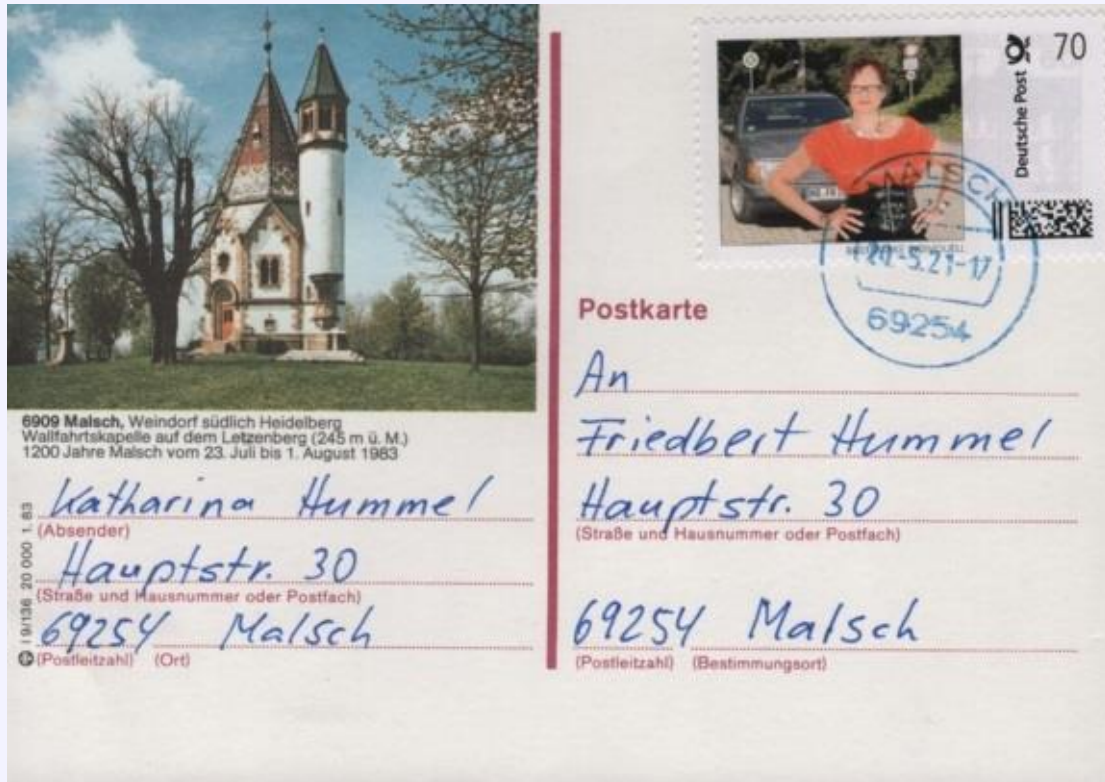 6909 Malsch, Weindorf südlich Heidelberg
Wallfahrtskapelle auf dem Letzenberg (245 m ü. M.)
1200 Jahre Malsch vom 23. Juli bis 1. August 1983
Katharina Hummel
(Absender)
Hauptstr. 30
(Straße und Hausnummer oder Postfach)
69254 Malsch
(Postleitzahl) (Ort)
I 9/136 20 000 1. 83
Deutsche Post 70
MALSCH
-5.21-17
69254
Postkarte
An
Friedbert Hummel
Hauptstr. 30
(Straße und Hausnummer oder Postfach)
69254 Malsch
(Postleitzahl) (Bestimmungsort)